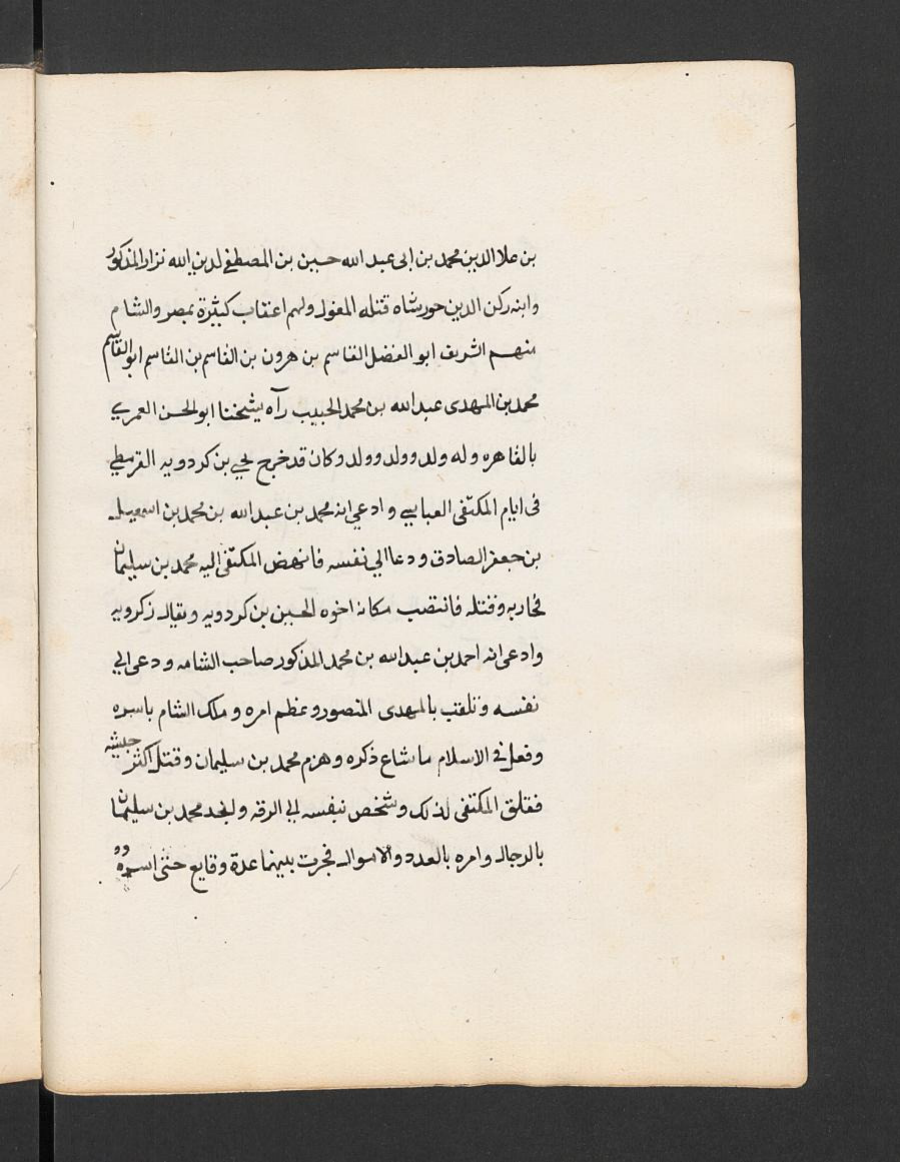 بن علا الدين محمد بن ابى عبد الله حسين بن المصطفى لدين الله نزار المذكور
وابنه ركن الدين خورشاه قتله المغول ولهم اعقاب كثيرة بمصر والشام
منهم الشريف ابو الفضل القاسم بن هرون بن القاسم بن القاسم ابو القاسم
محمد بن المهدى عبد الله بن محمد الحبيب رآه شيخنا ابو الحسن العمري
بالقاهره وله ولد وولد وولد وكان قد خرج يحي بن كردويه القرمطي
فى ايام المكتفى العباسي وادعي انه محمد بن عبد الله بن محمد بن اسمعيل
بن جعفر الصادق ودعا الي نفسه فانهض المكتفى اليه محمد بن سليمان
فحاربه وقتله فانتصب مكانه اخوه الحسين بن كردويه ويقال زكرويه
وادعى انه احمد بن عبد الله بن محمد المذكور صاحب الشامه ودعى الي
نفسه وتلقب بالمهدى المنصور وعظم امره وملك الشام باسره
وفعل فى الاسلام ما شاع ذكره وهزم محمد بن سليمان وقتل اكثر جيشه
فقلق المكتفى لذلك وشخص بنفسه الي الرقه وانجد محمد بن سليمان
بالرجال وامره بالعدد والاموال فجرت بينهما عدة وقايع حتى اسروه